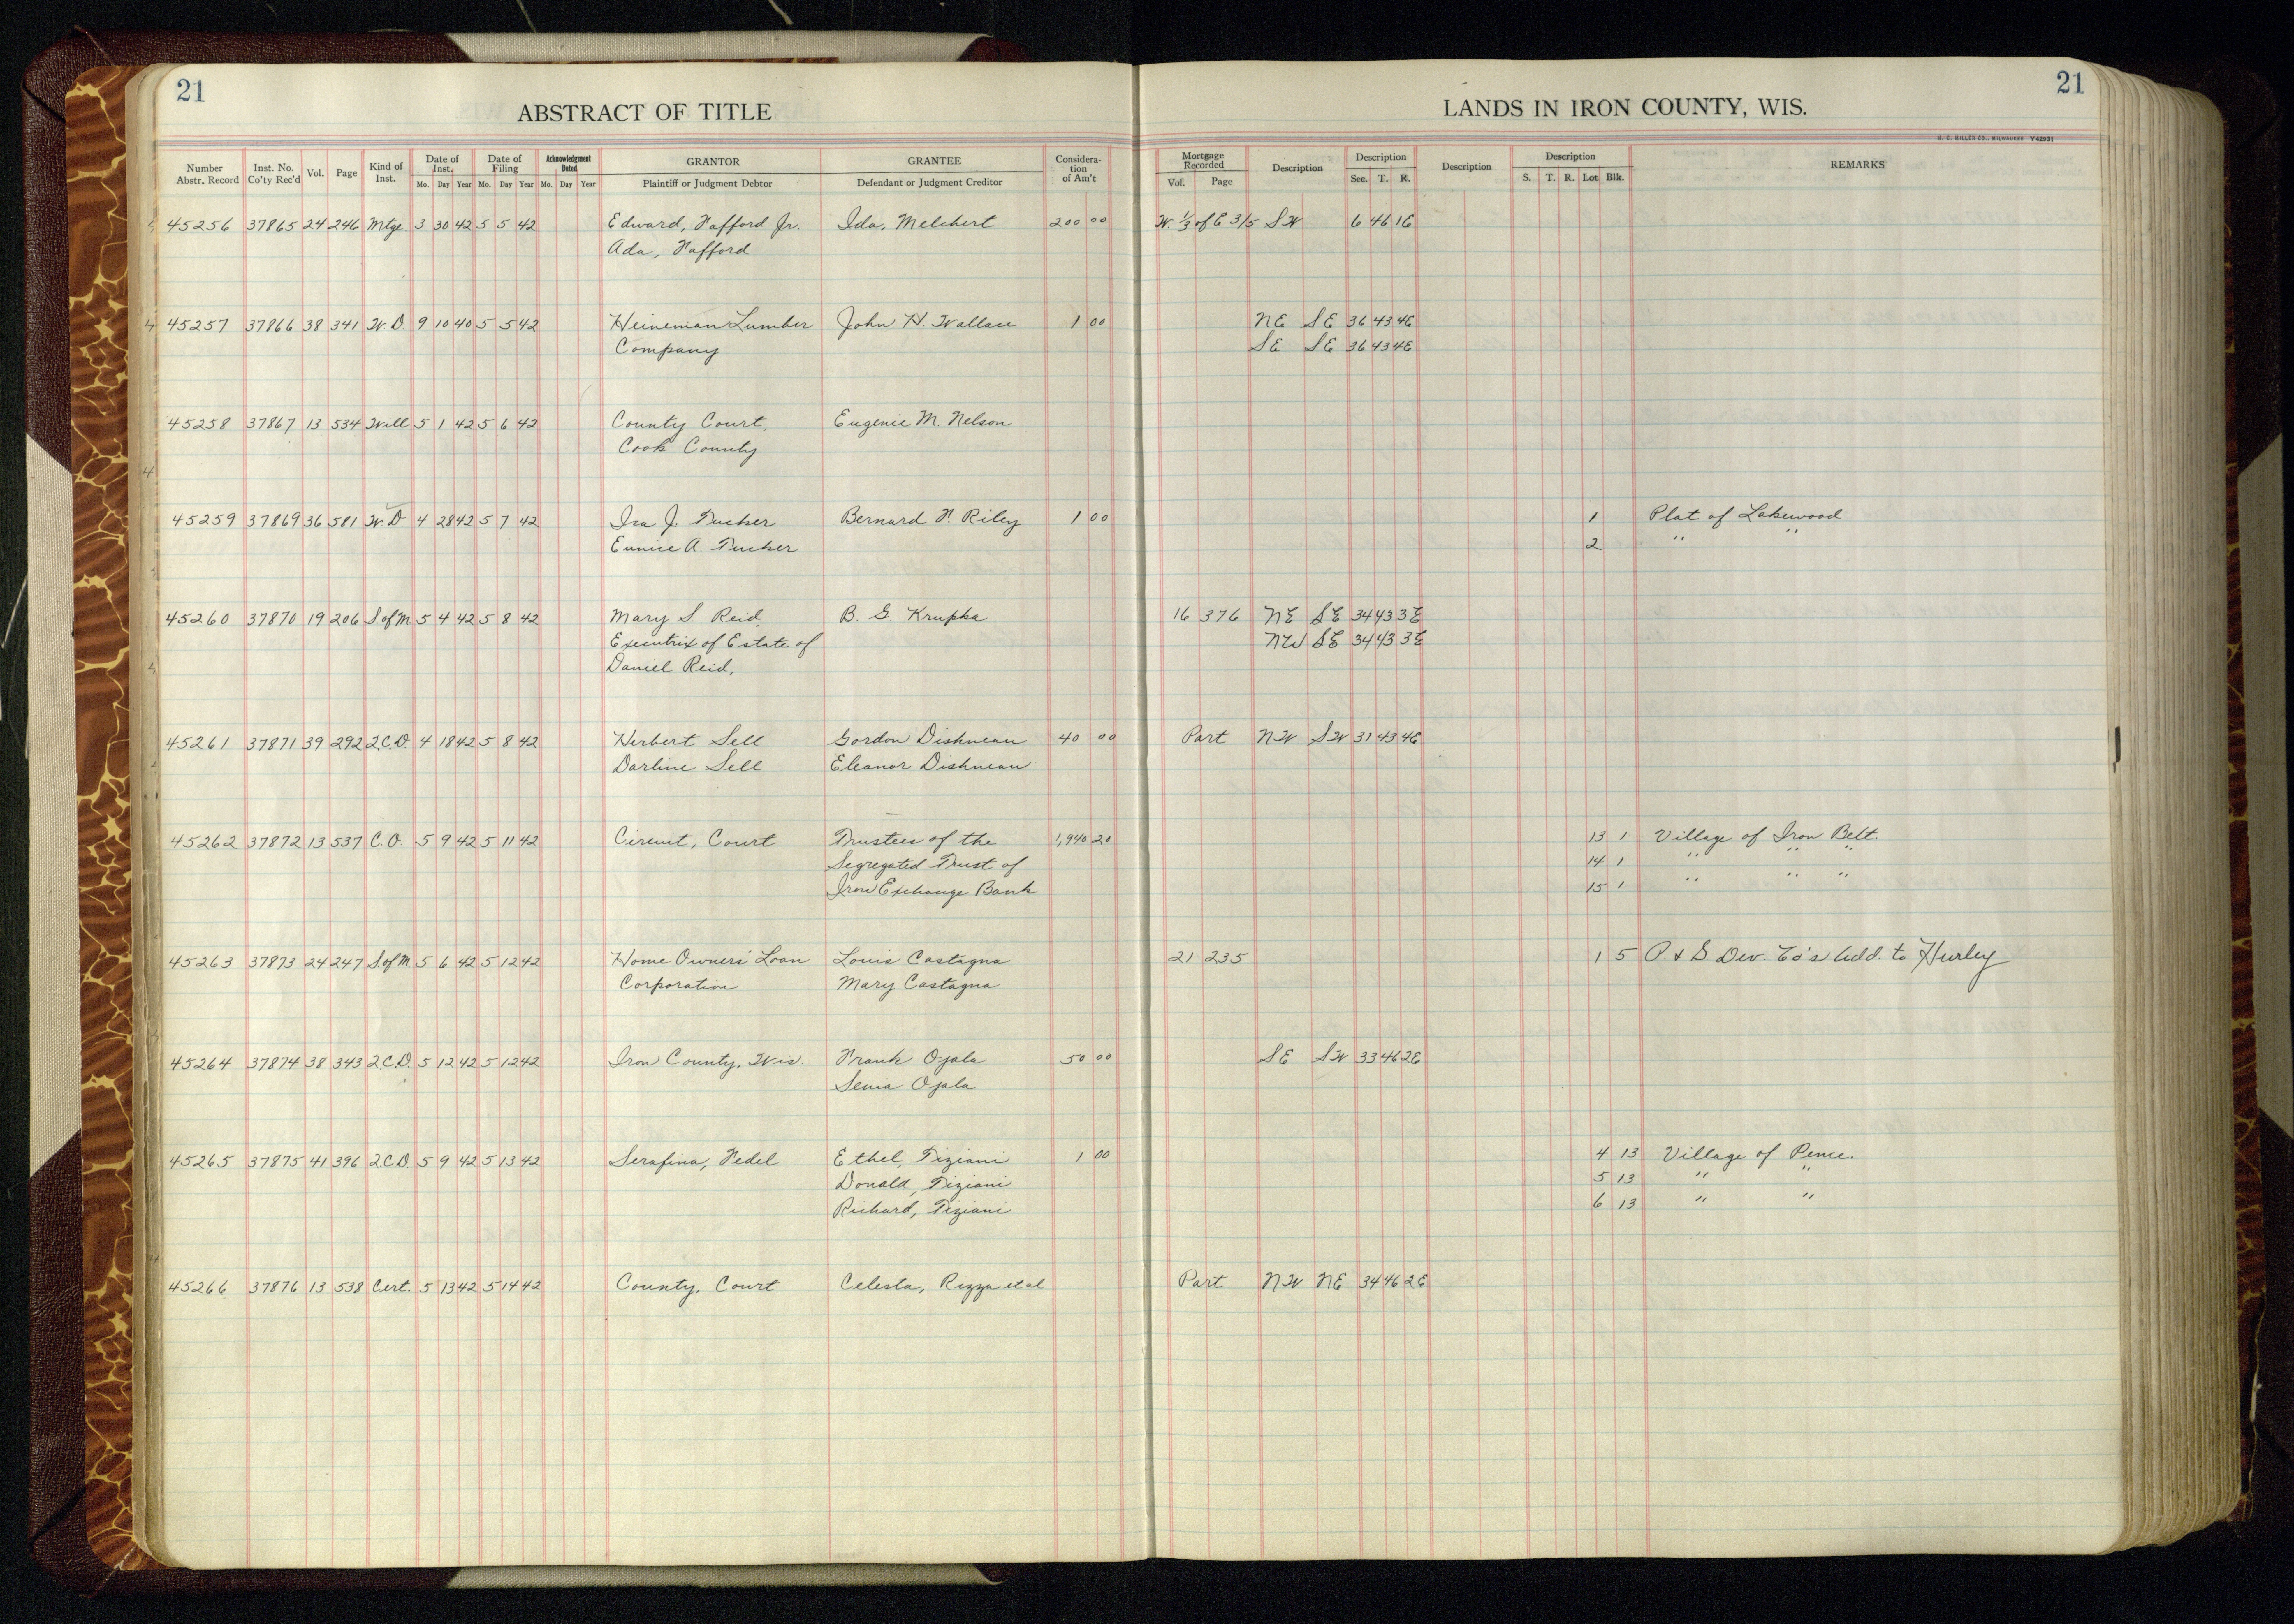 21
21
ABSTRACT OF TITLE
LANDS IN IRON COUNTY, WIS.
H. C. MILLER CO., MILWAUKEE Y42931
Number Abstr. Record Inst. No. Co'ty Rec'd Vol. Page Kind of Inst. Date of Inst. Mo. Day Year Date of Filing Mo. Day Year Acknowledgment Dated Mo. Day Year GRANTOR Plaintiff or Judgment Debtor GRANTEE Defendant or Judgment Creditor Consideration of Am't Mortgage Recorded Vol. Page Description Description Sec. T. R. Description Description S. T. R. Lot Blk. REMARKS
45256 37865 24 246 Mtge. 3 30 42 5 5 42 Edward, Fafford Jr. Ida, Melchert 200 00 W. 1/3 of E 3/5 SW 6 46 1E
Ada, Fafford
45257 37866 38 341 W.D. 9 10 40 5 5 42 Heineman Lumber John H. Wallace 1 00 NE SE 36 43 4E
Company SE SE 36 43 4E
45258 37867 13 534 Will 5 1 42 5 6 42 County Court, Eugenie M. Nelson
Cook County
45259 37869 36 581 W.D. 4 28 42 5 7 42 Ira J. Tucker Bernard F. Riley 1 00 1 Plat of Lakewood
Eunice A. Tucker 2 " "
45260 37870 19 206 S.of M. 5 4 42 5 8 42 Mary S. Reid, B. G. Krupka 16 376 NE SE 34 43 3E
Executrix of Estate of NW SE 34 43 3E
Daniel Reid,
45261 37871 39 292 Q.C.D. 4 18 42 5 8 42 Herbert Sell Gordon Dishneau 40 00 Part NW SW 31 43 4E
Darline Sell Eleanor Dishneau
45262 37872 13 537 C.O. 5 9 42 5 11 42 Circuit, Court Trustees of the 1,940 20 13 1 Village of Iron Belt.
Segregated Trust of 14 1 " " "
Iron Exchange Bank 15 1 " " "
45263 37873 24 247 S.of M. 5 6 42 5 12 42 Home Owners' Loan Louis Castagna 21 235 1 5 P. & G. Dev. Co's Add. to Hurley
Corporation Mary Castagna
45264 37874 38 343 Q.C.D. 5 12 42 5 12 42 Iron County, Wis. Frank Ojala 50 00 SE SW 33 46 2E
Senia Ojala
45265 37875 41 396 Q.C.D. 5 9 42 5 13 42 Serafina, Fedel Ethel, Tiziani 1 00 4 13 Village of Pence.
Donald, Tiziani 5 13 " "
Richard, Tiziani 6 13 " "
45266 37876 13 538 Cert. 5 13 42 5 14 42 County, Court Celesta, Rizza et al Part NW NE 34 46 2E